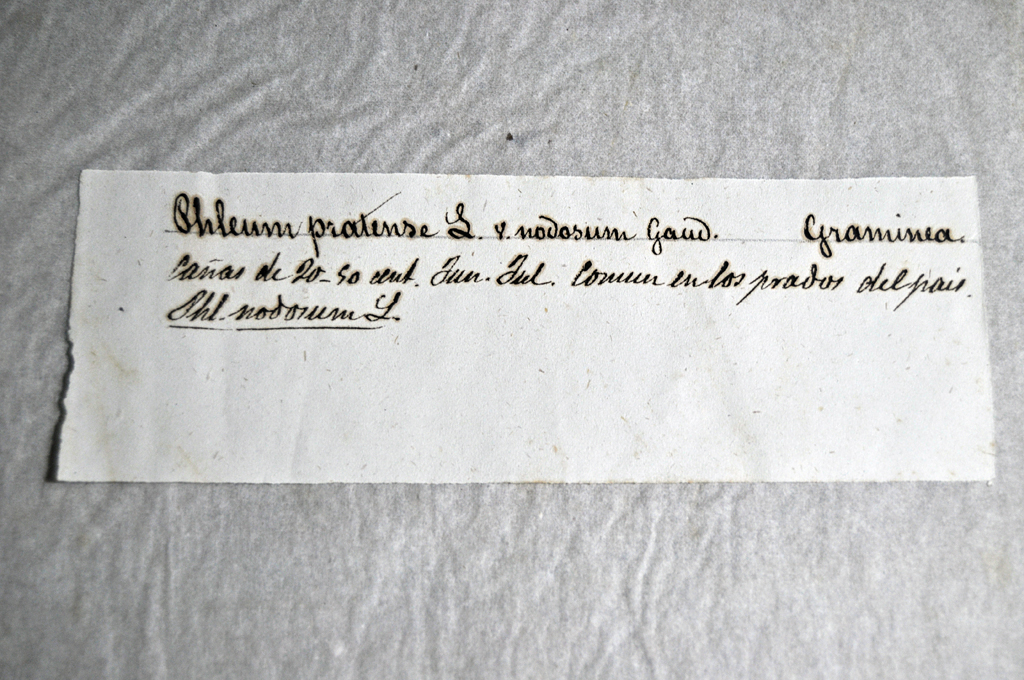 Phleum pratense L. v. nodosum Gaud. Graminea.
Cañas de 20-50 cent. Jun. Jul. Comun en los prados del pais.
Phl. nodosum L.